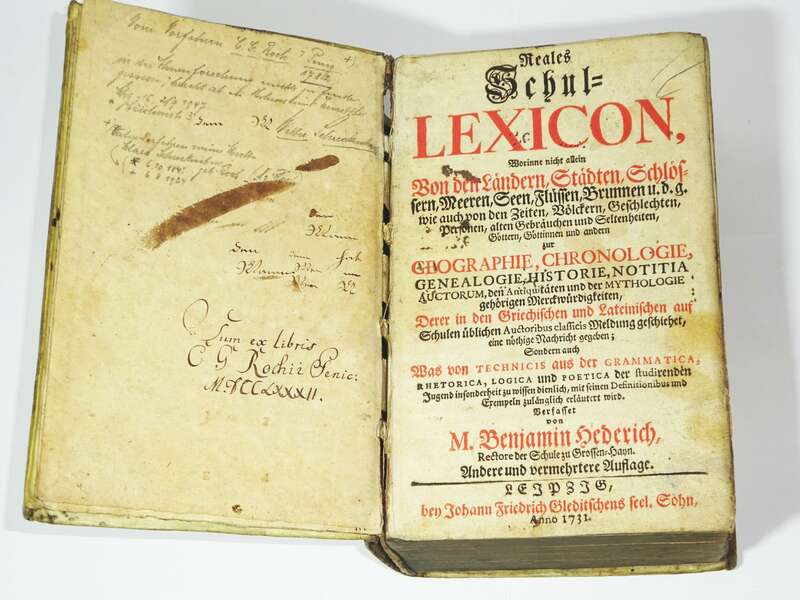 Vom Vorfahren C. G. Roch
1782
in der Ahnenforschung nicht zu finden
dem
den
den dem hat
Sum ex libris
C G Rochii Penic:
M.DCCLXXXII.
Reales
Schul-
LEXICON,
Worinne nicht allein
Von den Ländern, Städten, Schlös-
sern, Meeren, Seen, Flüssen, Brunnen u. d. g.
wie auch von den Zeiten, Völckern, Geschlechten,
Personen, alten Gebräuchen und Seltenheiten,
Göttern, Göttinnen und andern
zur
GEOGRAPHIE, CHRONOLOGIE,
GENEALOGIE, HISTORIE, NOTITIA
AUCTORUM, den Antiquitäten und der MYTHOLOGIE
gehörigen Merckwürdigkeiten,
Derer in den Griechischen und Lateinischen auf
Schulen üblichen Auctoribus classicis Meldung geschiehet,
eine nöthige Nachricht gegeben;
Sondern auch
Was von TECHNICIS aus der GRAMMATICA,
RHETORICA, LOGICA und POETICA der studirenden
Jugend insonderheit zu wissen dienlich, mit seinen Definitionibus und
Exempeln zulänglich erläutert wird.
Verfasset
von
M. Benjamin Hederich,
Rectore der Schule zu Grossen-Hayn.
Andere und vermehrtere Auflage.
LEIPZIG,
bey Johann Friedrich Gleditschens seel. Sohn,
Anno 1731.